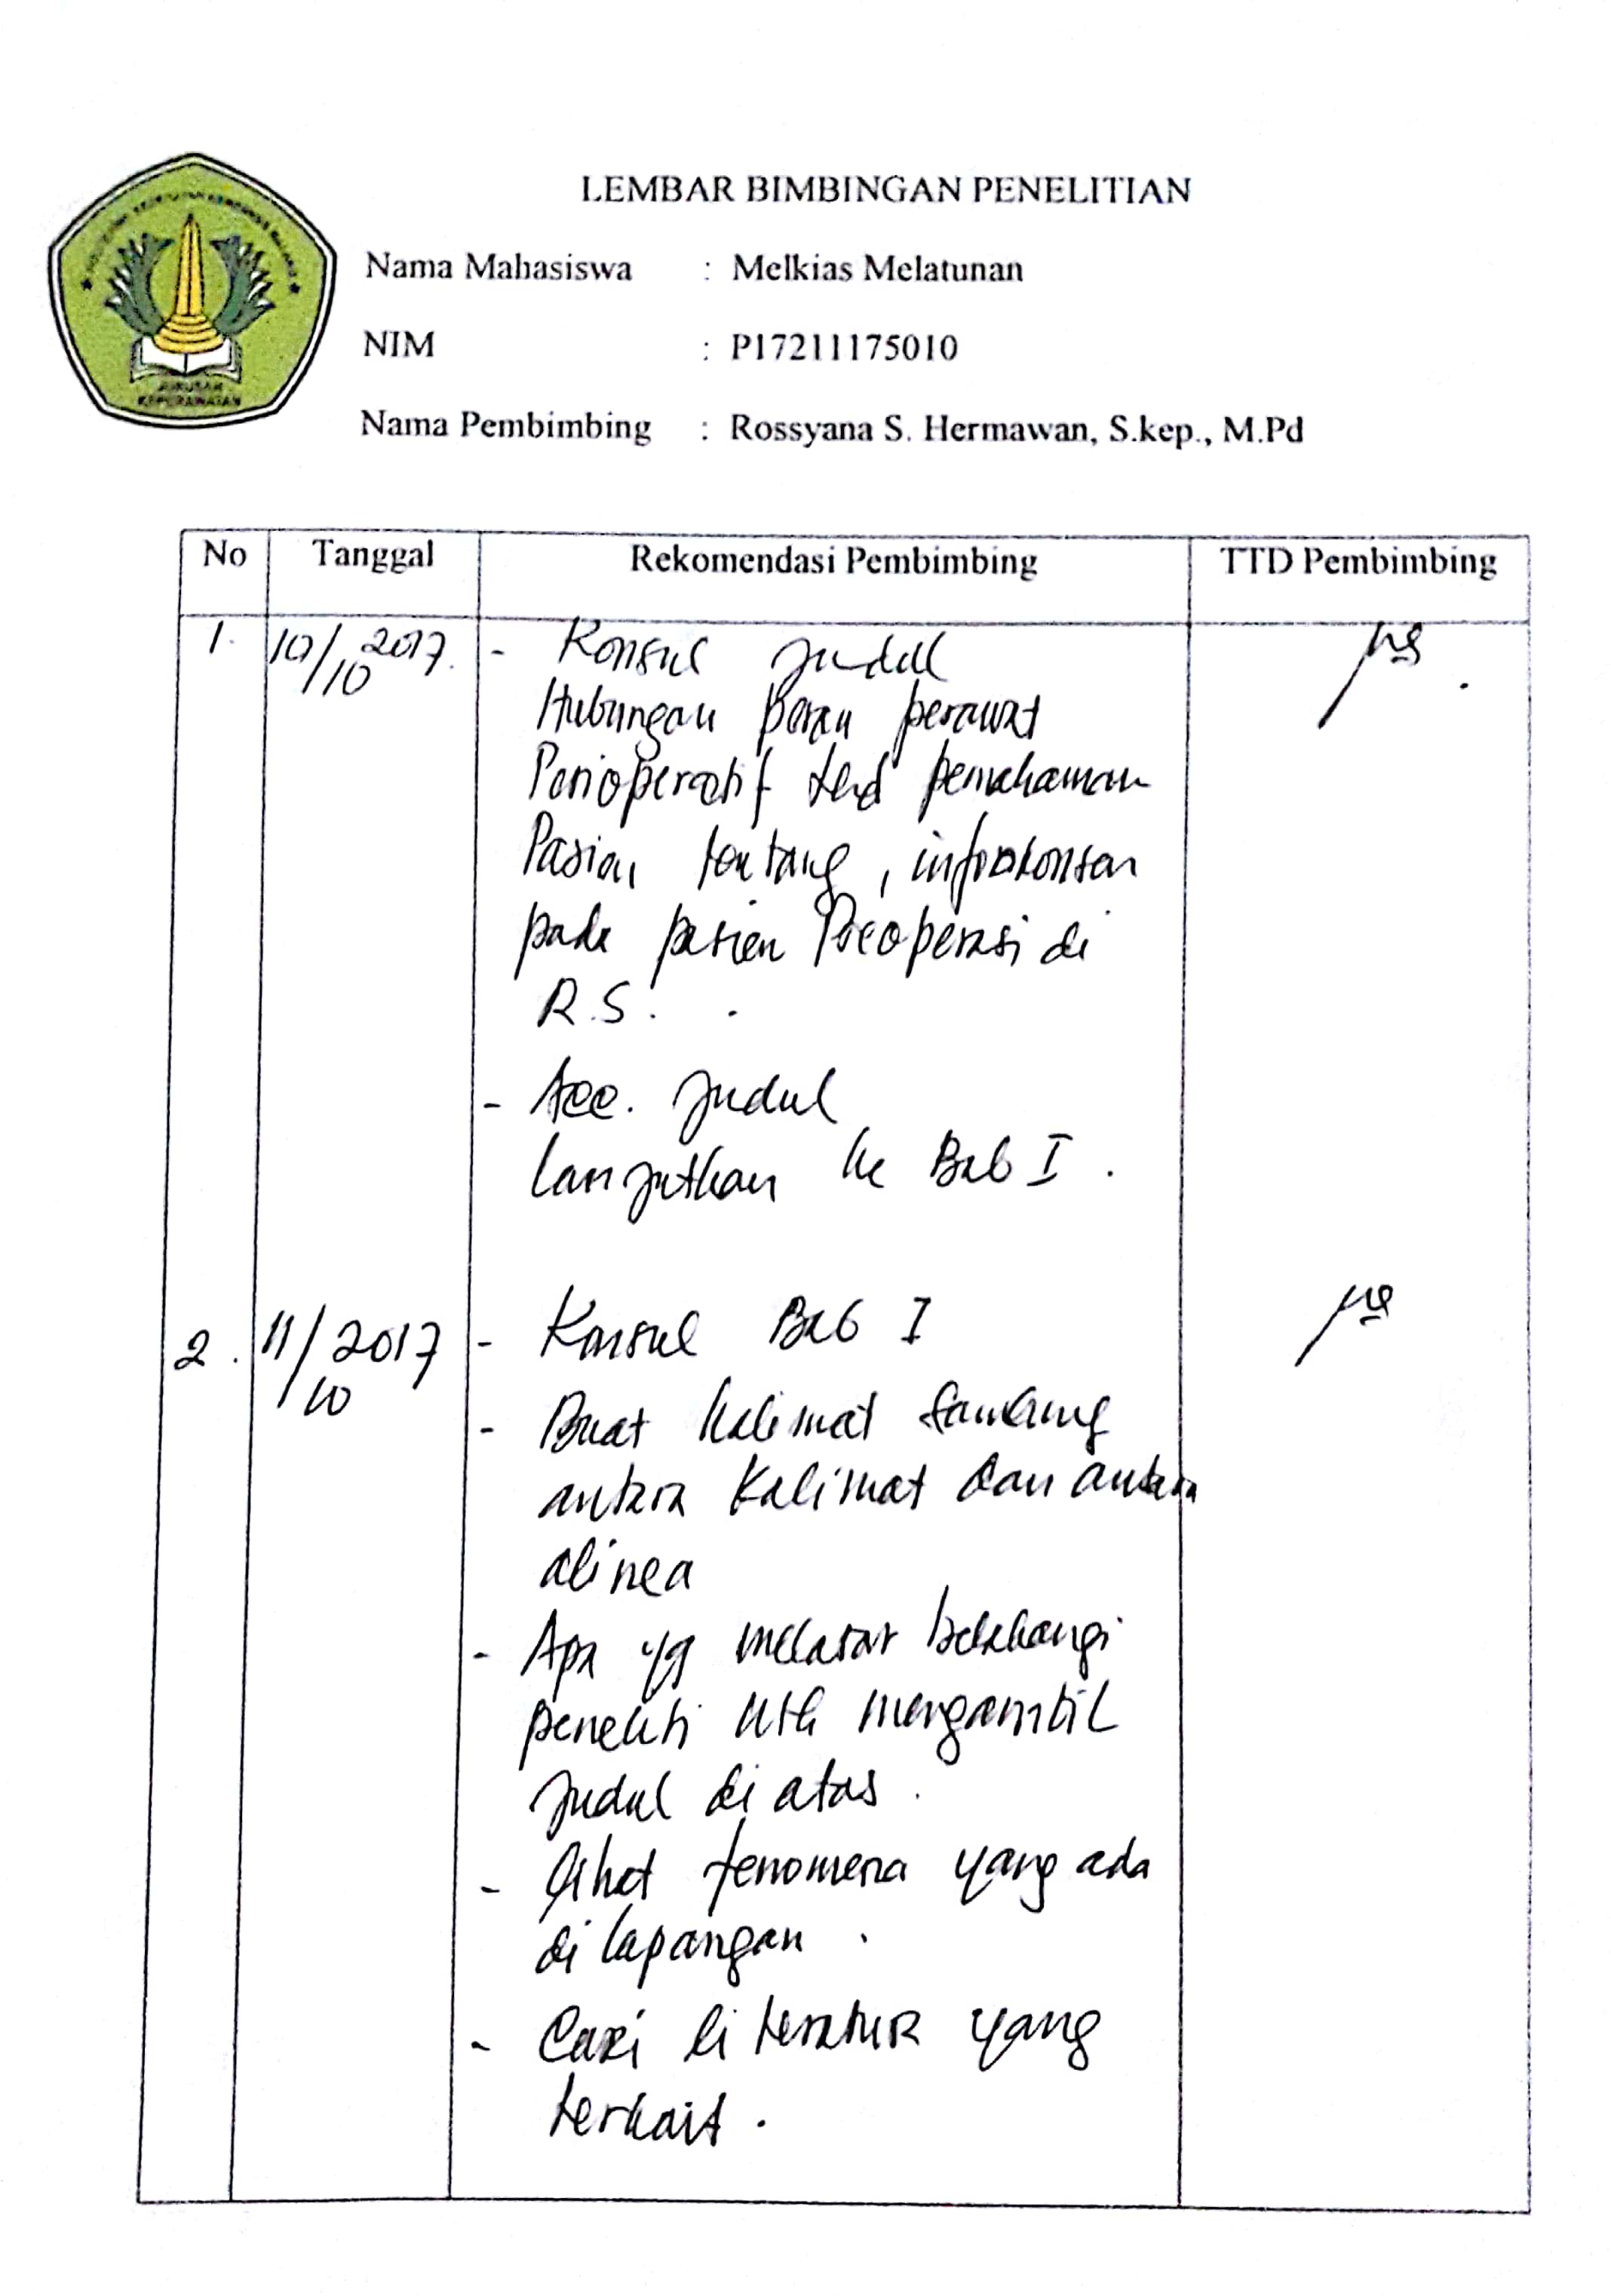 LEMBAR BIMBINGAN PENELITIAN
Nama Mahasiswa : Melkias Melatunan
NIM : P17211175010
Nama Pembimbing : Rossyana S. Hermawan, S.kep., M.Pd
JURUSAN
KEPERAWATAN
No Tanggal Rekomendasi Pembimbing TTD Pembimbing
1. 10/10 2017. - Konsul judul
Hubungan peran perawat
Perioperatif thd pemahaman
Pasien tentang, infrokonsen
pada pasien Preoperasi di
R.S.
- Acc. judul
lanjutkan ke Bab I.
2. 11/10 2017 - Konsul Bab I
- Buat kalimat sambung
antara kalimat dan antara
alinea
- Apa yg melatar belakangi
peneliti utk mengambil
judul di atas.
- lihat fenomena yang ada
di lapangan.
- Cari literatur yang
terkait.